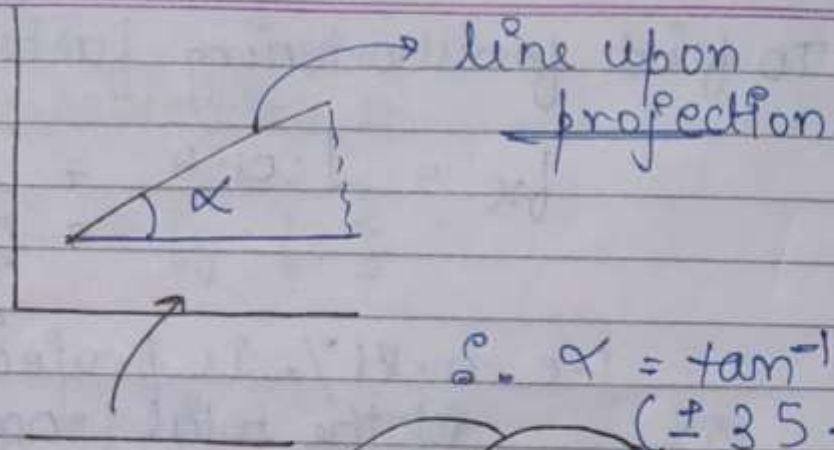 line upon
projection
α
∴ α = tan⁻¹
(± 35.